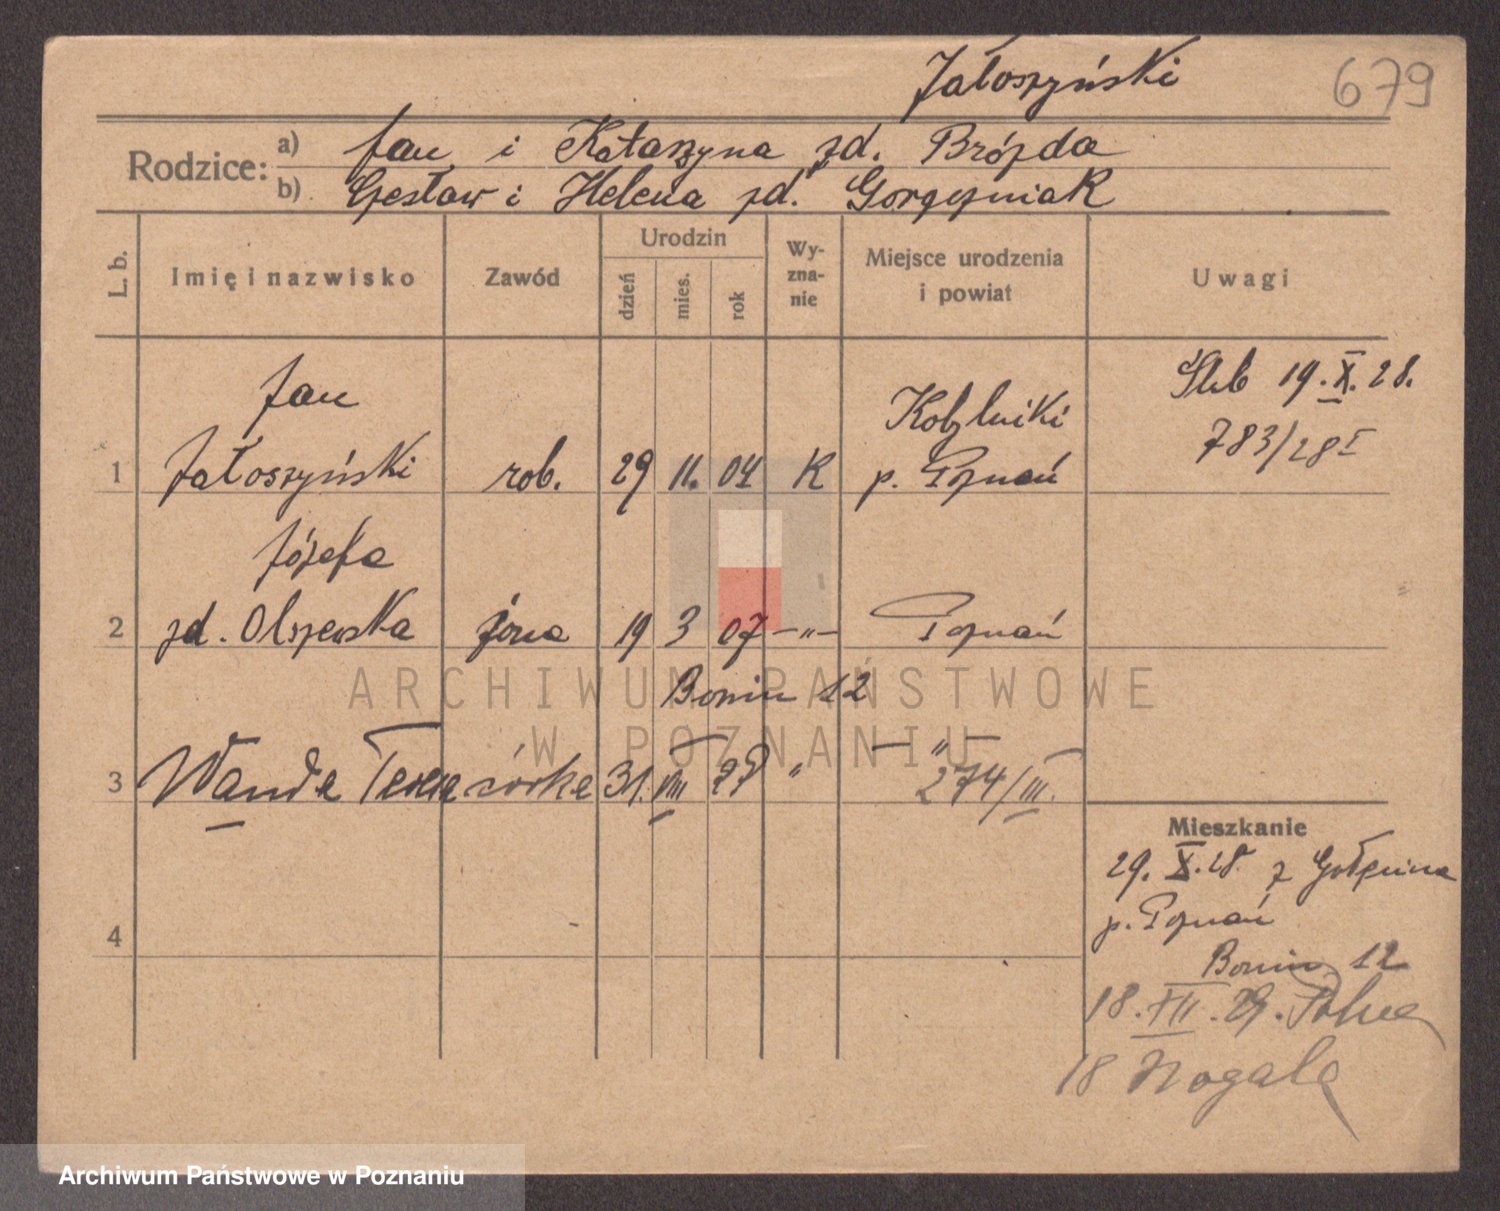 Jałoszyński 679
Rodzice: a) Jan i Katarzyna zd. Brózda
b) Czesław i Helena zd. Gorączniak
L. b. Imię i nazwisko Zawód Urodzin dzień mies. rok Wyznanie Miejsce urodzenia i powiat Uwagi
Jan Kobylniki Ślub 19.X.28.
1 Jałoszyński rob. 29 11. 04 K p. Poznań 783/28 I
Józefa
2 zd. Olszewska żona 19 3 07 —„— Poznań
Bonin 12
3 Wanda Teresa córka 31. VIII 28 „ — „ —
274/III.
Mieszkanie
29. X. 28. z Gołęcina
p. Poznań
4 Bonin 12
18. XII. 29. Polna
18 Nogala
ARCHIWUM PAŃSTWOWE
W POZNANIU
Archiwum Państwowe w Poznaniu